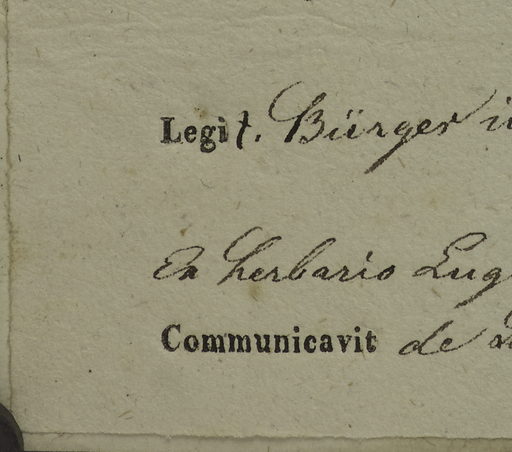 Legit. Bürger
Ex herbario Lug
Communicavit de